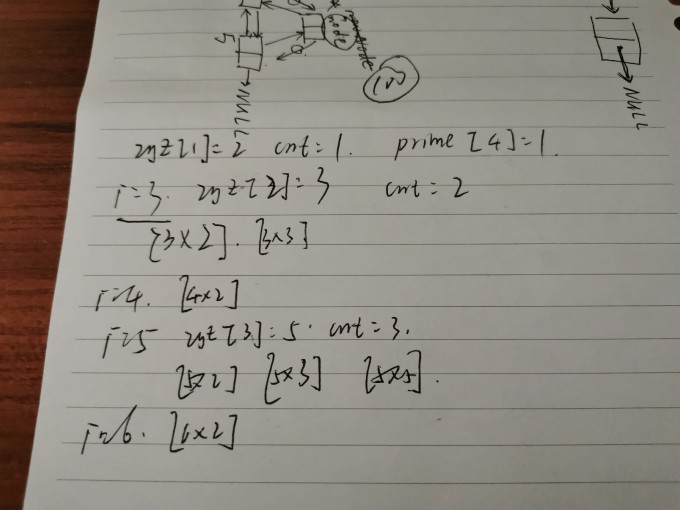 5
NULL
Code
100
NULL
zyz[1]=2 cnt=1. prime[4]=1.
i=3. zyz[2]=3 cnt=2
[3×2]. [3×3]
i=4. [4×2]
i=5 zyz[3]=5. cnt=3.
[5×2] [5×3] [5×5].
i=6. [6×2]